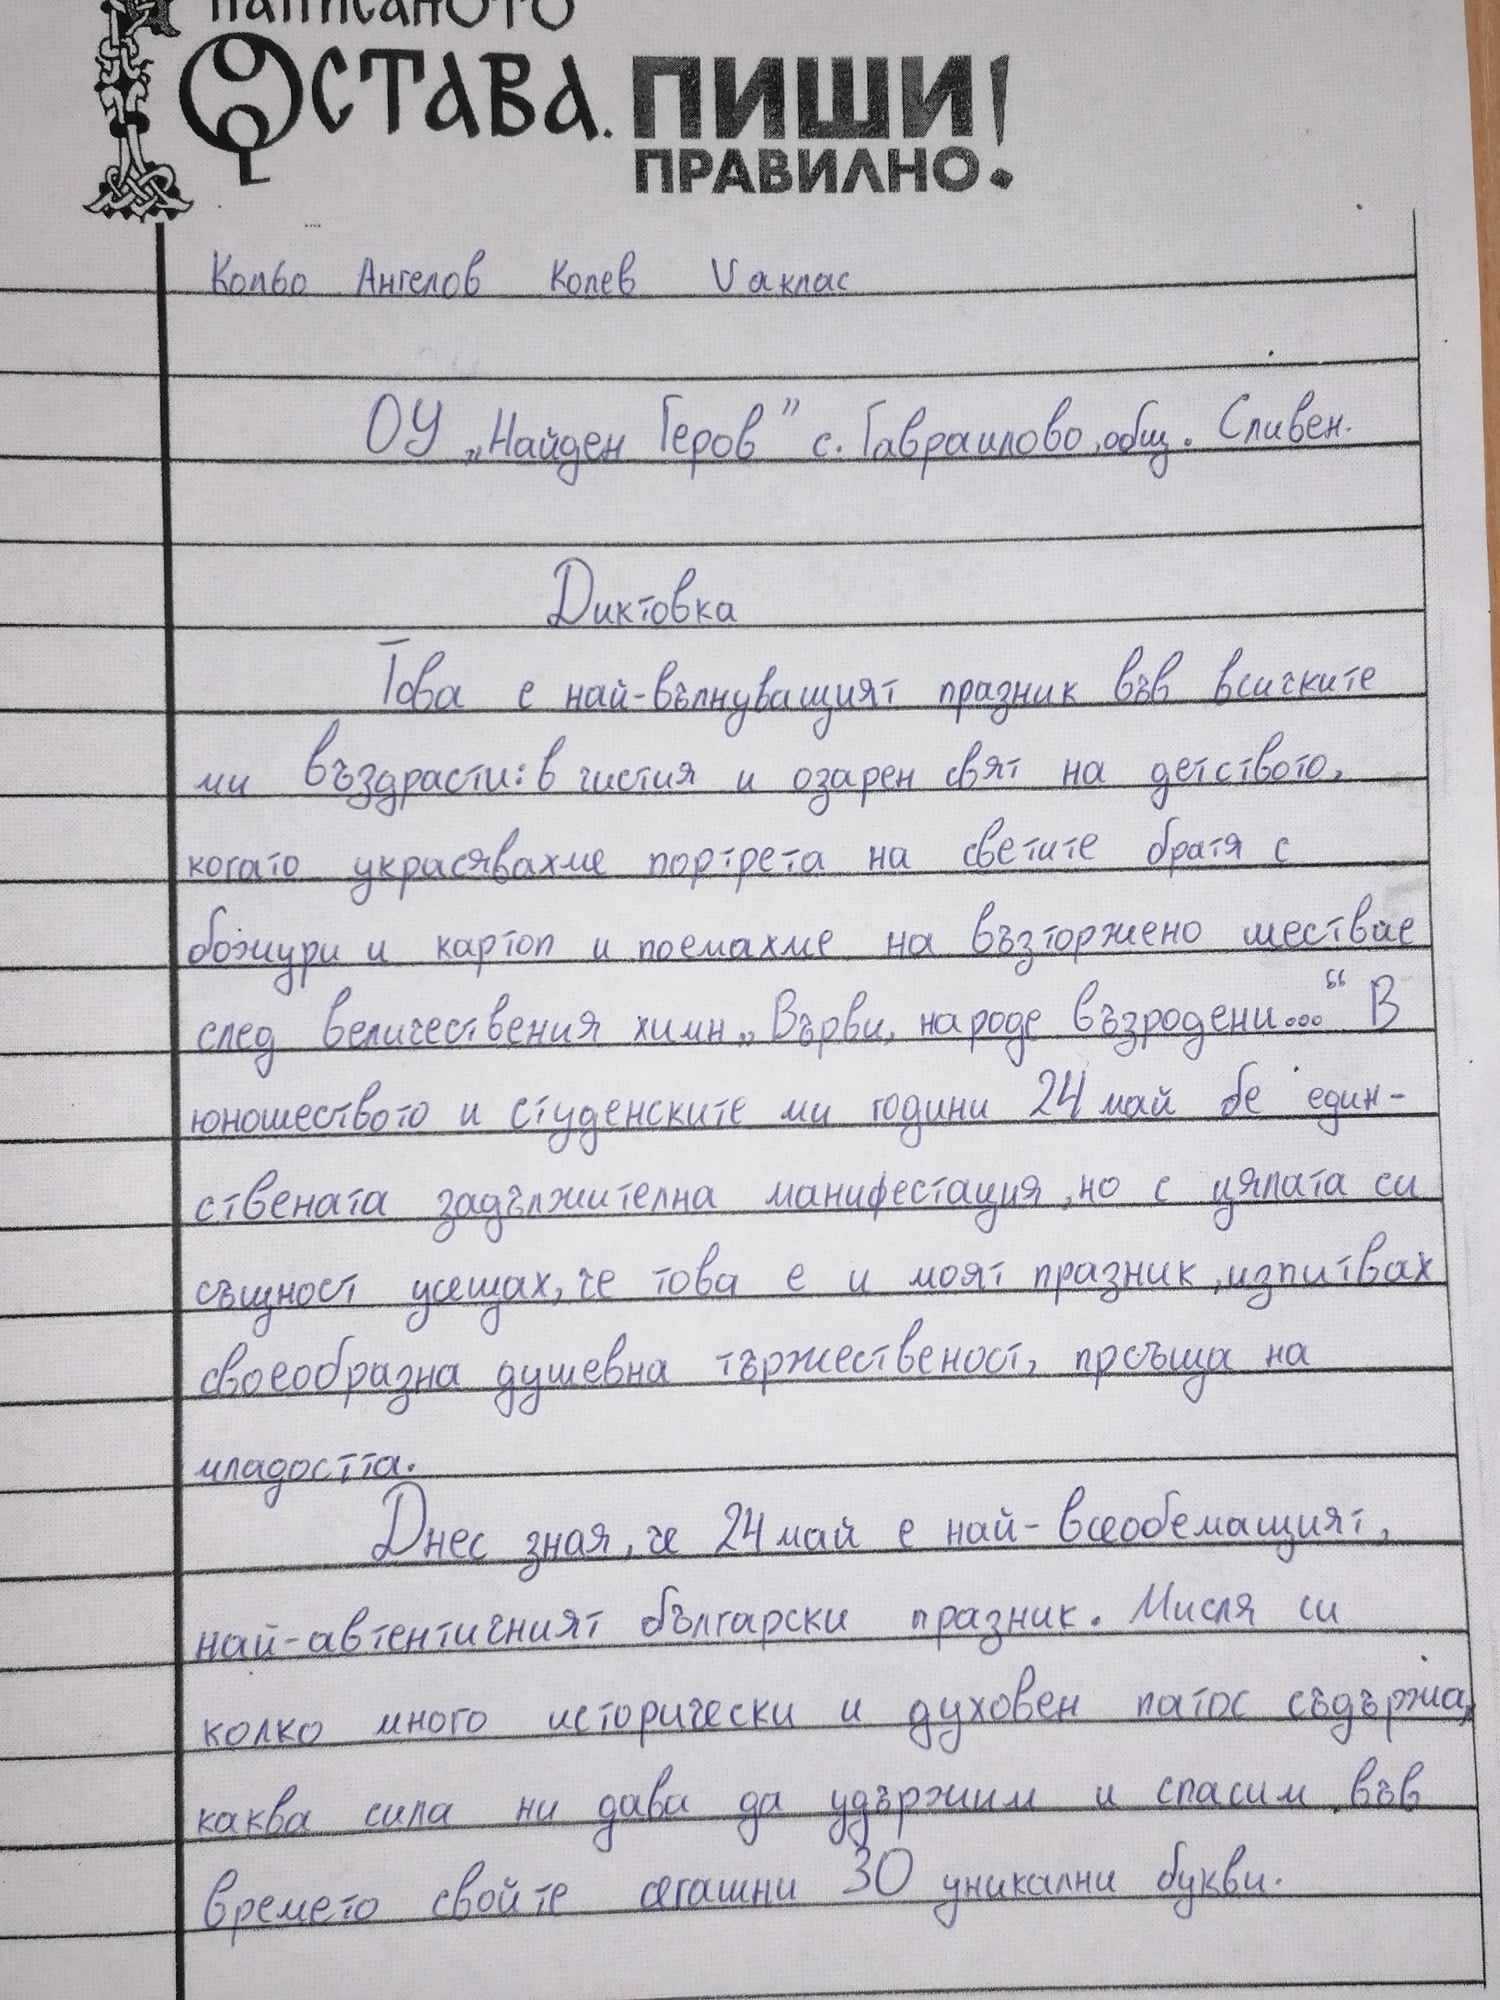 написаното
Остава. ПИШИ
ПРАВИЛНО!
Кольо Ангелов Колев V а клас
ОУ „Найден Геров” с. Гавраилово, общ. Сливен.
Диктовка
Това е най-вълнуващият празник във всичките
ми въздрасти: в чистия и озарен свят на детството,
когато украсявахме портрета на светите братя с
божури и картоп и поемахме на възторжено шествие
след величествения химн „Върви, народе възродени...“ В
юношеството и студенските ми години 24 май бе един-
ствената задължителна манифестация, но с цялата си
същност усещах, че това е и моят празник, изпитвах
своеобразна душевна тържественост, присъща на
младостта.
Днес зная, че 24 май е най-всеобемащият,
най-автентичният български празник. Мисля си
колко много исторически и духовен патос съдържа,
каква сила ни дава да удържим и спасим във
времето свойте сегашни 30 уникални букви.